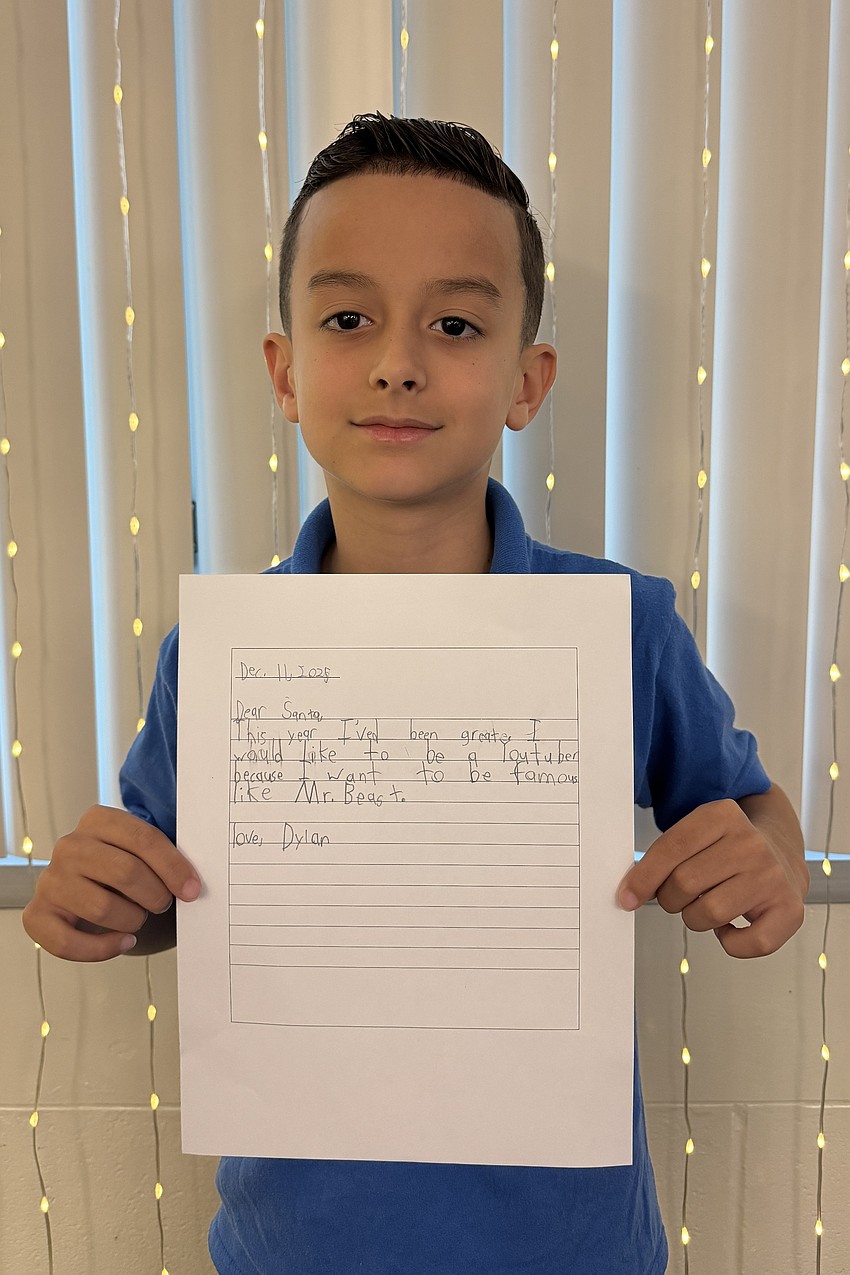 Dec. 11, 2025
Dear Santa,
This year I'ved been great, I
would like to be a Youtuber
because I want to be famous
like Mr. Beast.
love, Dylan